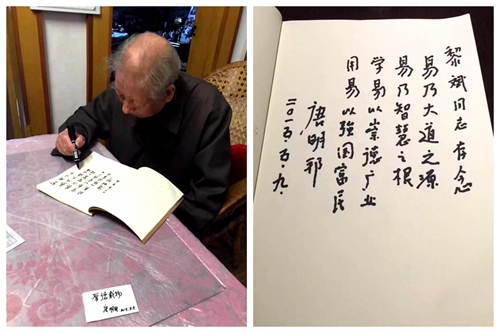 黎斌同志存念
易乃大道之源
易乃智慧之根
学易以崇德广业
用易以强国富民
唐明邦
二〇一五.五.九.
厚德载物